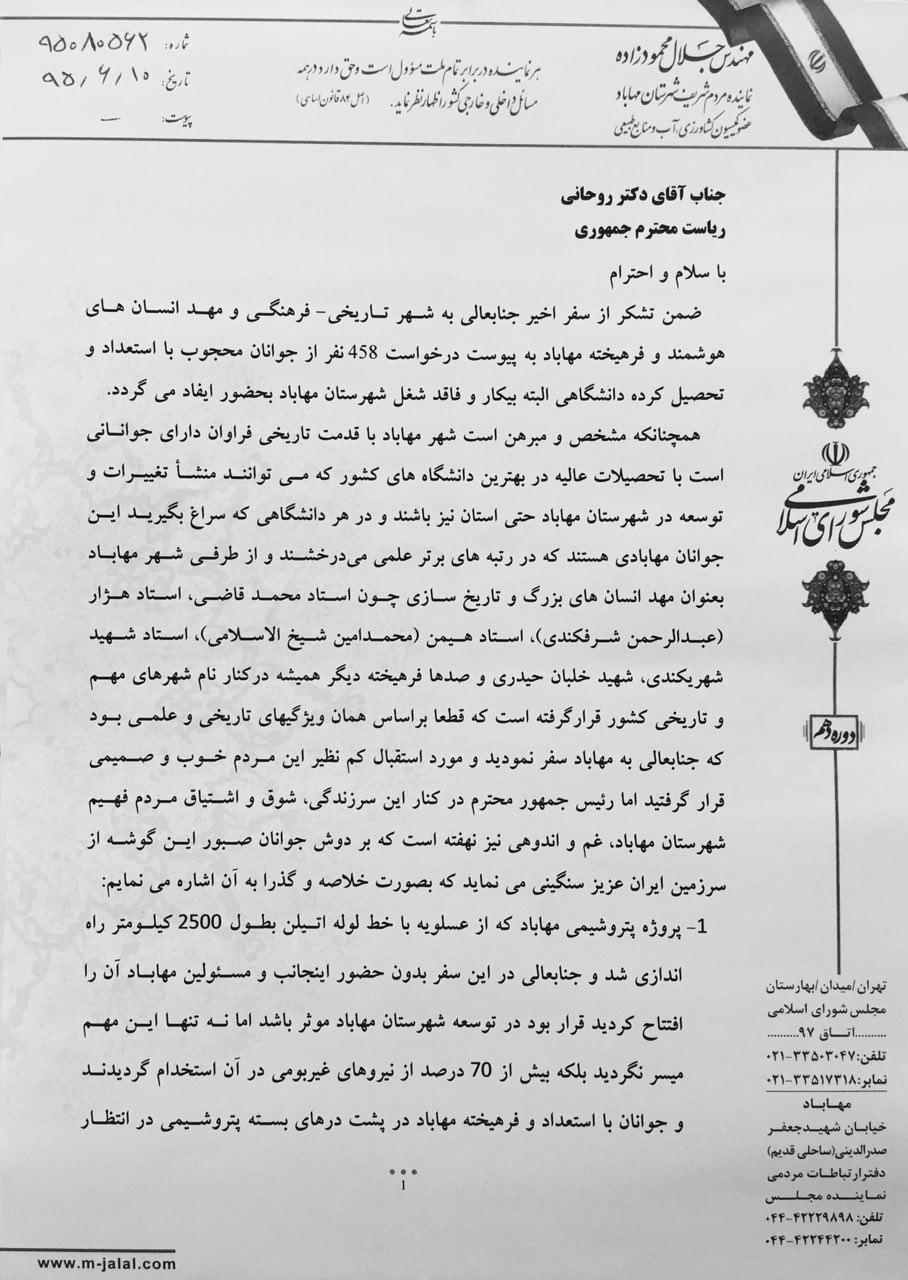 باسمه تعالی
مهندس جلال محمودزاده
نماینده مردم شریف شهرستان مهاباد
عضو کمیسیون کشاورزی، آب و منابع طبیعی
هر نماینده در برابر تمام ملت مسؤول است و حق دارد در همه
مسائل داخلی و خارجی کشور اظهار نظر نماید. (اصل ۸۴ قانون اساسی)
شماره: ۹۵۰۸۰۵۶۲
تاریخ: ۹۵/۶/۱۰
پیوست: —
جناب آقای دکتر روحانی
ریاست محترم جمهوری
با سلام و احترام
ضمن تشکر از سفر اخیر جنابعالی به شهر تاریخی- فرهنگی و مهد انسان های
هوشمند و فرهیخته مهاباد به پیوست درخواست 458 نفر از جوانان محجوب با استعداد و
تحصیل کرده دانشگاهی البته بیکار و فاقد شغل شهرستان مهاباد بحضور ایفاد می گردد.
همچنانکه مشخص و مبرهن است شهر مهاباد با قدمت تاریخی فراوان دارای جوانانی
است با تحصیلات عالیه در بهترین دانشگاه های کشور که می توانند منشأ تغییرات و
توسعه در شهرستان مهاباد حتی استان نیز باشند و در هر دانشگاهی که سراغ بگیرید این
جوانان مهابادی هستند که در رتبه های برتر علمی می‌درخشند و از طرفی شهر مهاباد
بعنوان مهد انسان های بزرگ و تاریخ سازی چون استاد محمد قاضی، استاد هژار
(عبدالرحمن شرفکندی)، استاد هیمن (محمدامین شیخ الاسلامی)، استاد شهید
شهریکندی، شهید خلبان حیدری و صدها فرهیخته دیگر همیشه درکنار نام شهرهای مهم
و تاریخی کشور قرارگرفته است که قطعا براساس همان ویژگیهای تاریخی و علمی بود
که جنابعالی به مهاباد سفر نمودید و مورد استقبال کم نظیر این مردم خوب و صمیمی
قرار گرفتید اما رئیس جمهور محترم در کنار این سرزندگی، شوق و اشتیاق مردم فهیم
شهرستان مهاباد، غم و اندوهی نیز نهفته است که بر دوش جوانان صبور این گوشه از
سرزمین ایران عزیز سنگینی می نماید که بصورت خلاصه و گذرا به آن اشاره می نمایم:
1- پروژه پتروشیمی مهاباد که از عسلویه با خط لوله اتیلن بطول 2500 کیلومتر راه
اندازی شد و جنابعالی در این سفر بدون حضور اینجانب و مسئولین مهاباد آن را
افتتاح کردید قرار بود در توسعه شهرستان مهاباد موثر باشد اما نه تنها این مهم
میسر نگردید بلکه بیش از 70 درصد از نیروهای غیربومی در آن استخدام گردیدند
و جوانان با استعداد و فرهیخته مهاباد در پشت درهای بسته پتروشیمی در انتظار
...
1
جمهوری اسلامی ایران
مجلس شورای اسلامی
دوره دهم
تهران/میدان/بهارستان
مجلس شورای اسلامی
..........اتاق ۹۷..........
تلفن: ۳۳۵۰۳۰۴۷-۰۲۱
نمابر: ۳۳۵۱۷۳۱۸-۰۲۱
مهاباد
خیابان شهیدجعفر
صدرالدینی(ساحلی قدیم)
دفترارتباطات مردمی
نماینده مجلس
تلفن: ۴۲۲۲۹۸۹۸-۰۴۴
نمابر: ۴۲۲۴۴۲۰۰-۰۴۴
www.m-jalal.com